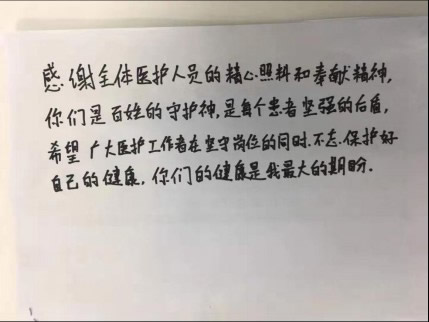 感谢全体医护人员的精心照料和奉献精神,
你们是百姓的守护神,是每个患者坚强的后盾,
希望广大医护工作者在坚守岗位的同时.不忘.保护好
自己的健康.你们的健康是我最大的期盼.